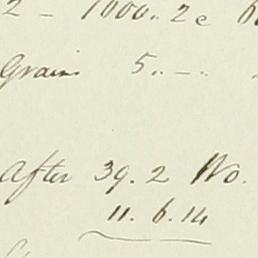 2 – 1000.. 2e
Grain 5.. –.
After 39. 2 No.
11. 6. 14